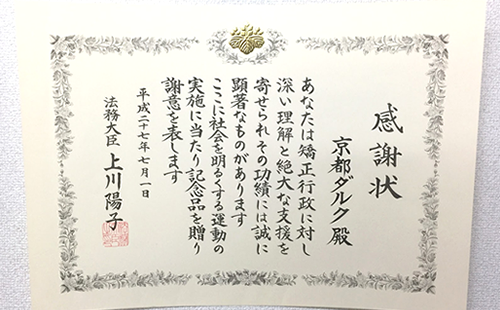 感謝状
京都ダルク殿
あなたは矯正行政に対し
深い理解と絶大な支援を
寄せられその功績には誠に
顕著なものがあります
ここに社会を明るくする運動の
実施に当たり記念品を贈り
謝意を表します
平成二十七年七月一日
法務大臣 上川陽子